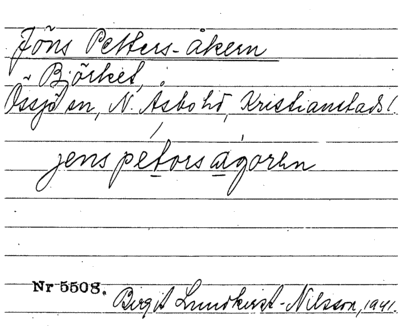 Jöns Petters-åkern
Björket,
Össjö sn, N. Åsbo hd, Kristianstads l.
jens pétors ágoren
Nr 5508. Birgit Lundkvist-Nilsson, 1941.